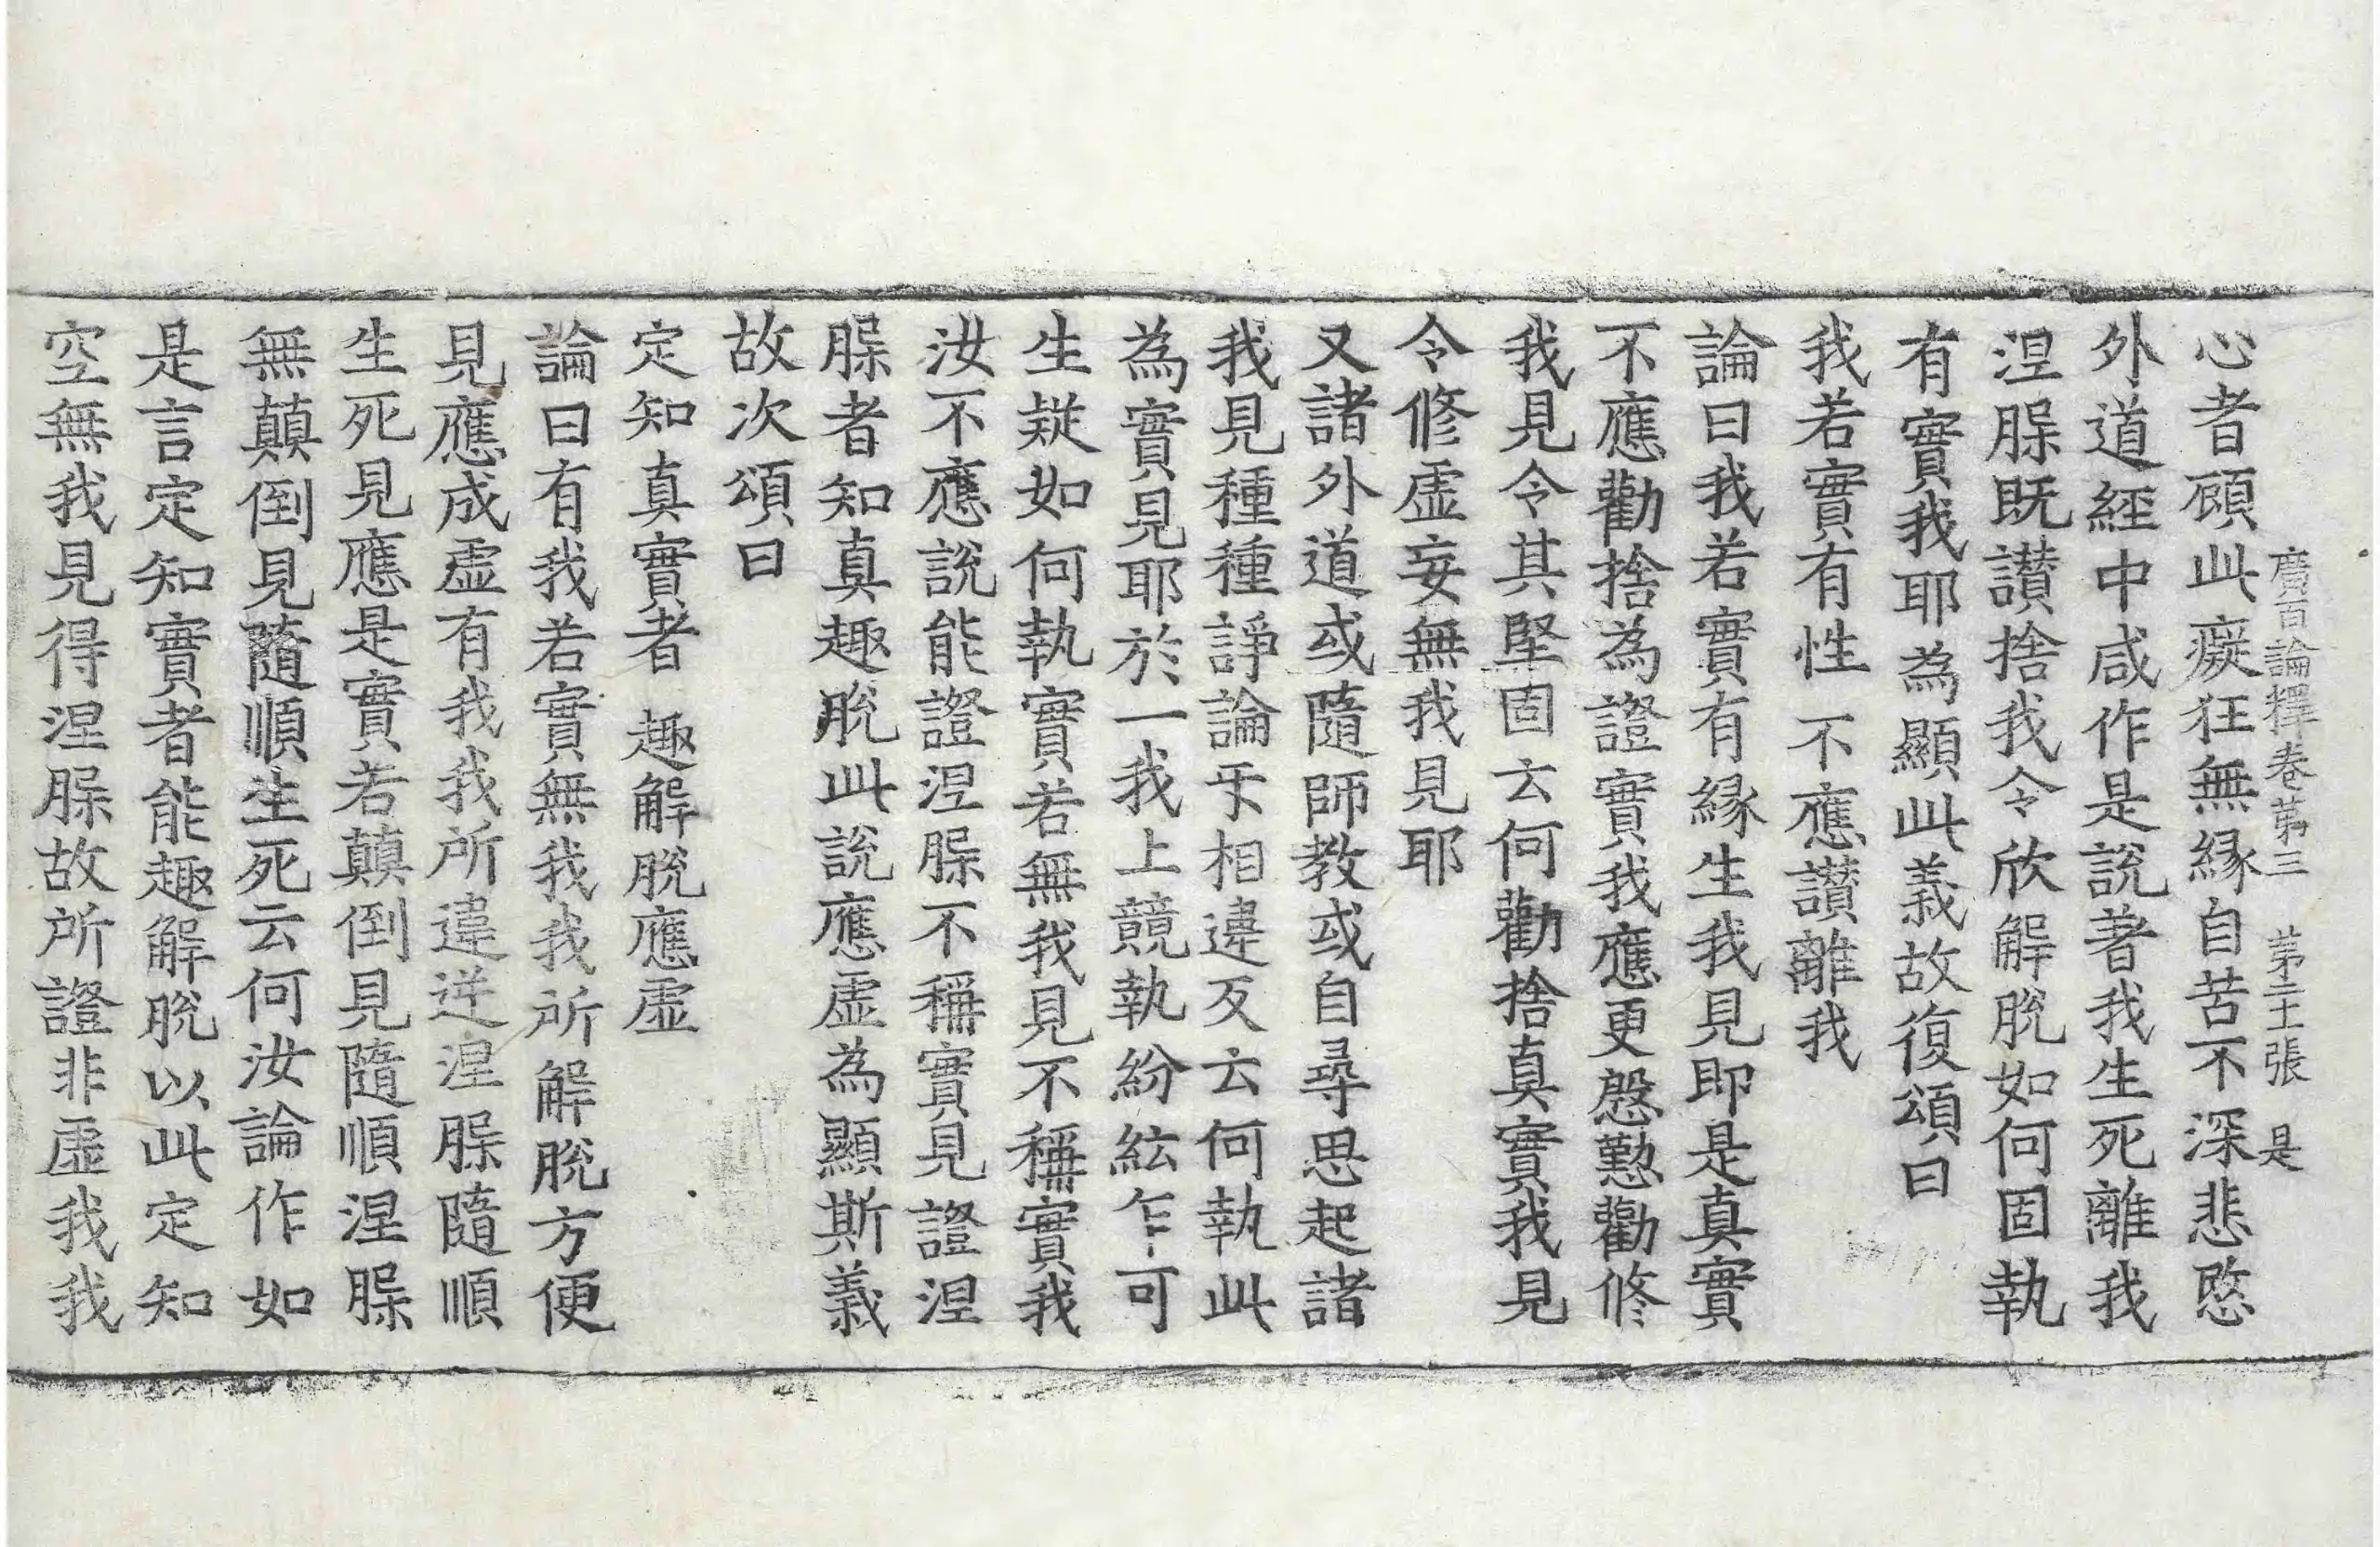 廣百論釋卷第三 第二十張 是
心者顧此癡狂無緣自苦不深悲愍
外道經中咸作是說著我生死離我
涅槃既讃捨我令欣解脫如何固執
有實我耶為顯此義故復頌曰
我若實有性 不應讃離我
論曰我若實有緣生我見即是真實
不應勸捨為證實我應更慇懃勸修
我見令其堅固云何勸捨真實我見
令修虛妄無我見耶
又諸外道或隨師教或自尋思起諸
我見種種諍論㸦相違反云何執此
為實見耶於一我上競執紛紜乍可
生疑如何執實若無我見不稱實我
汝不應說能證涅槃不稱實見證涅
槃者知真趣脫此說應虛為顯斯義
故次頌曰
定知真實者 趣解脫應虛
論曰有我若實無我我所解脫方便
見應成虛有我我所違逆涅槃隨順
生死見應是實若顛倒見隨順涅槃
無顛倒見隨順生死云何汝論作如
是言定知實者能趣解脫以此定知
空無我見得涅槃故所證非虛我我